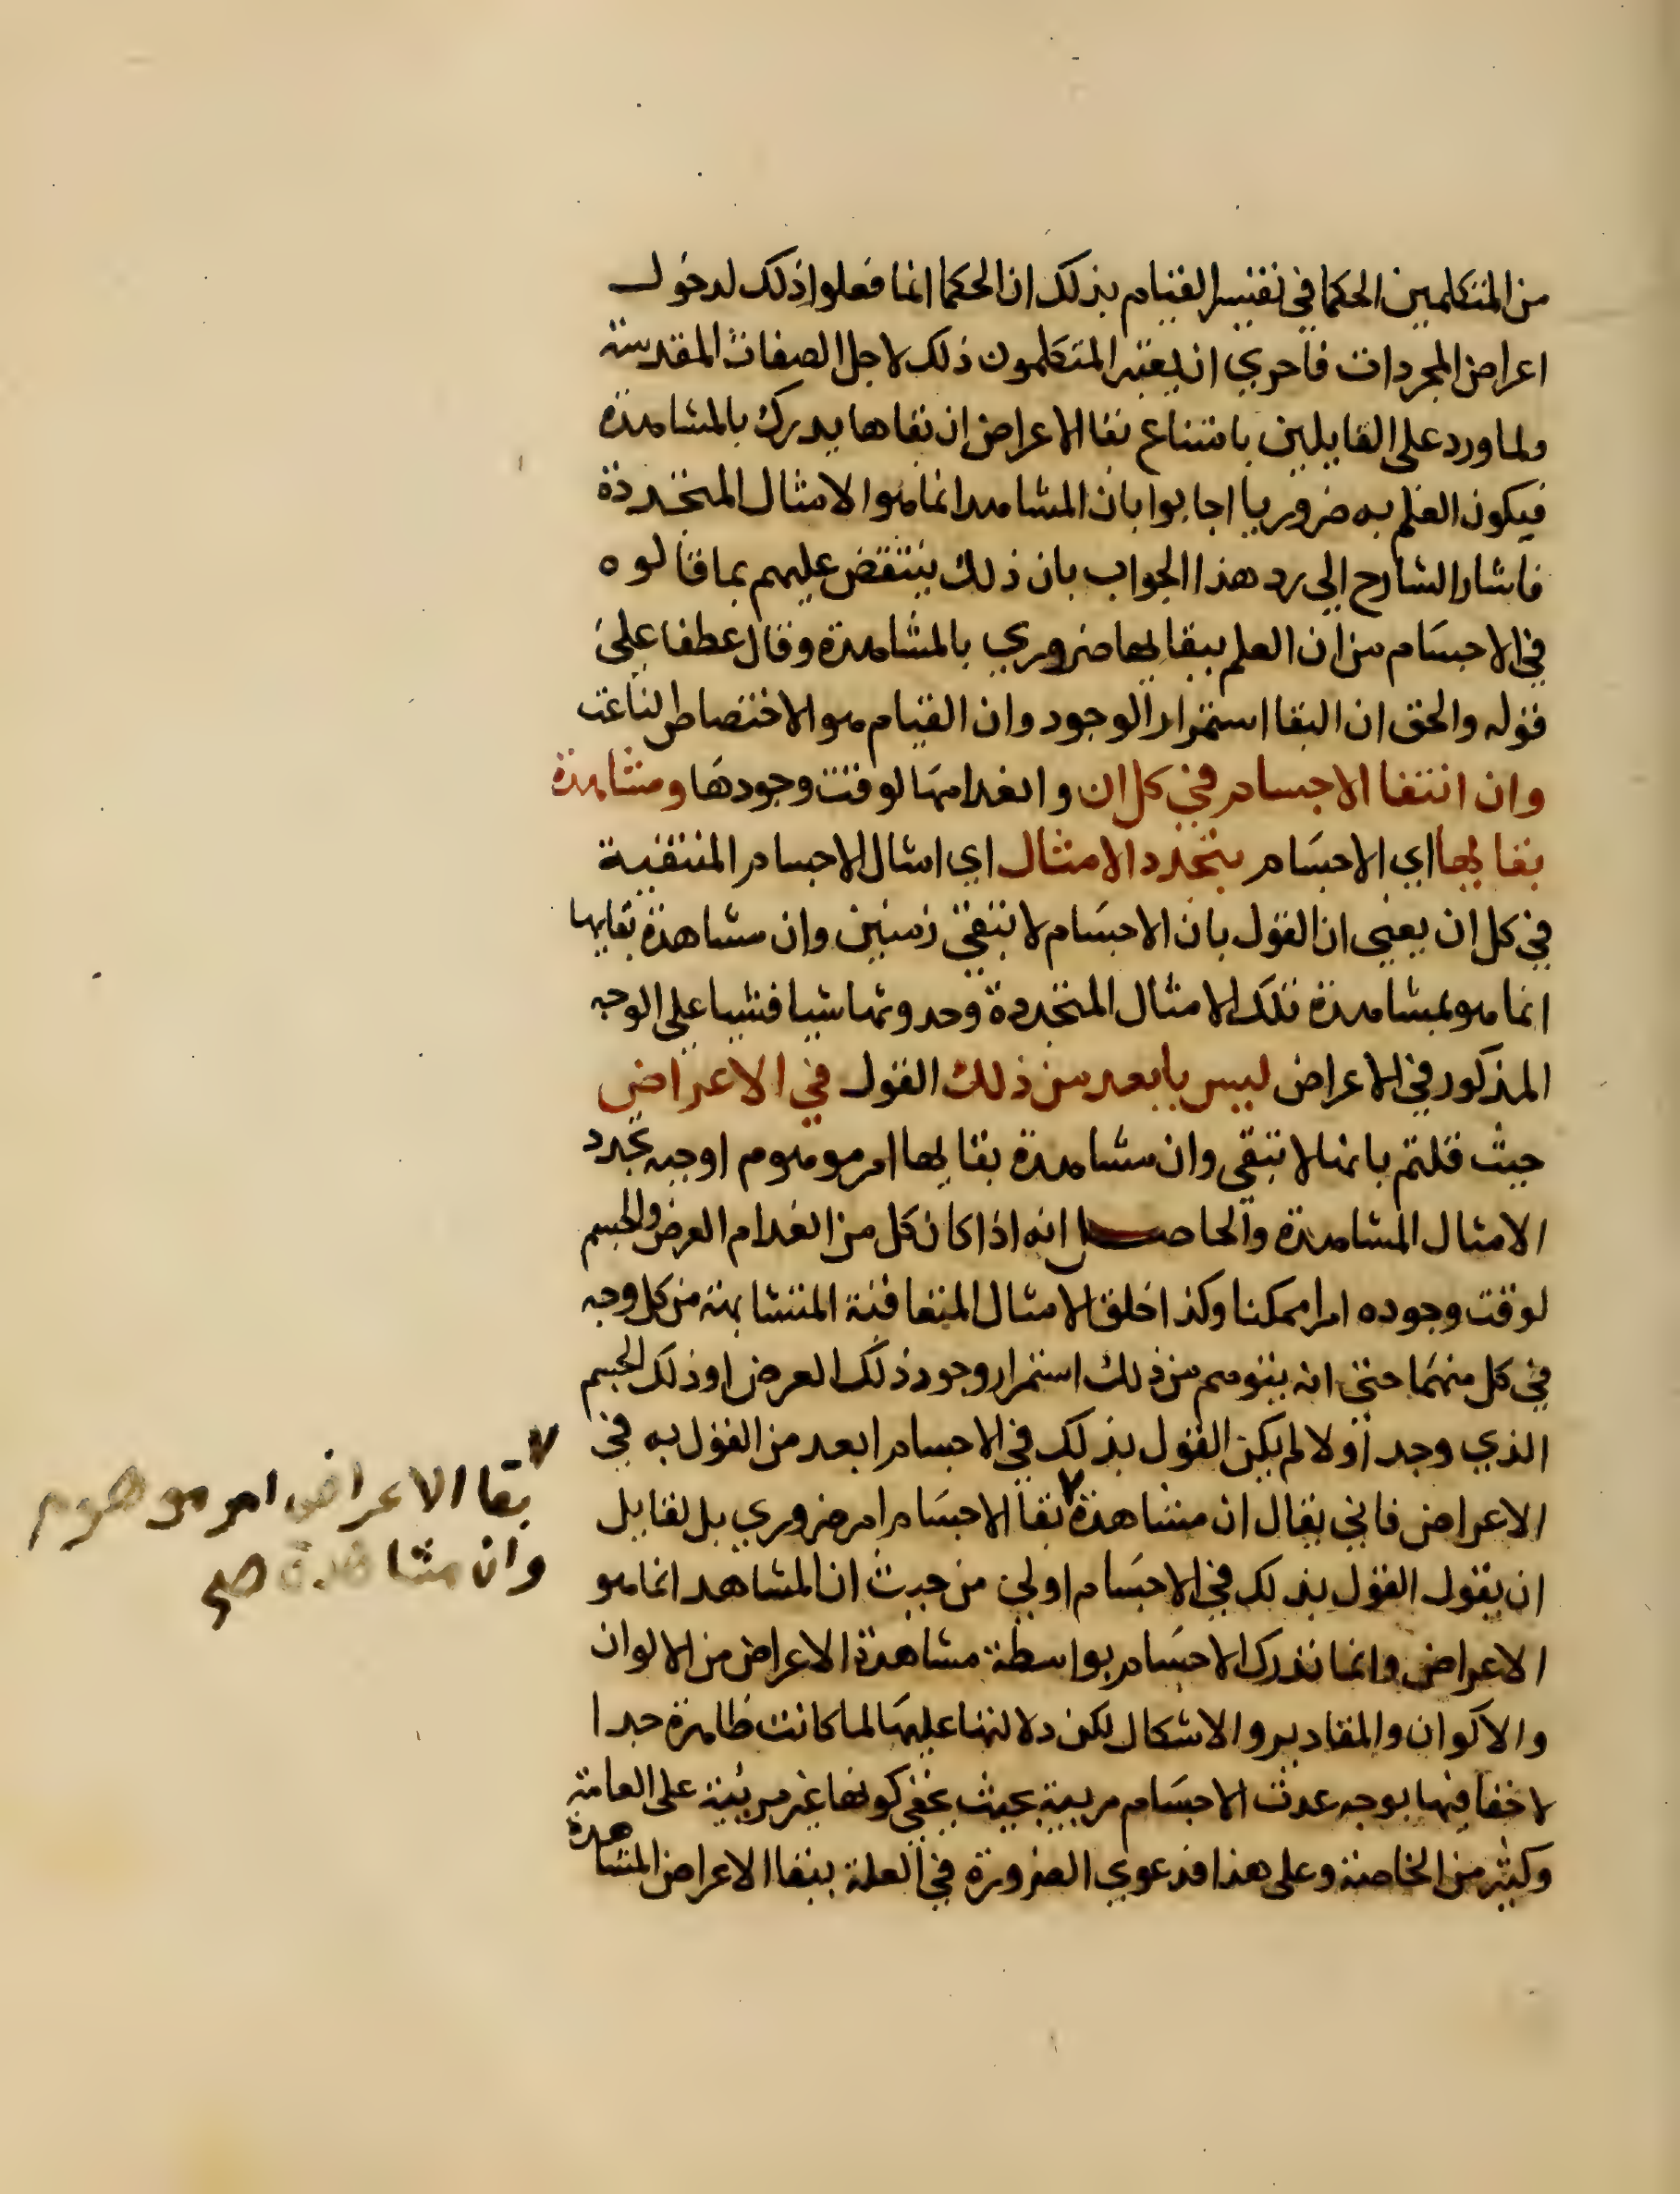 من المتكلمين الحكما في تفسير القيام بذلك ان الحكما انما فعلوا ذلك لدخول
اعراض المجردات فاحري ان يعتبر المتكلمون ذلك لاجل الصفات المقدسة
ولما ورد على القايلين بامتناع بقا الاعراض ان بقاها يدرك بالمشاهدة
فيكون العلم به ضروريا اجابوا بان المشاهد انما هو الامثال المتجددة
فاشار الشارح الي رد هذا الجواب بان ذلك ينتقض عليهم بما قالوه
في الاجسام من ان العلم ببقايها ضروري بالمشاهدة وقال عطفا على
قوله والحق ان البقا استمرار الوجود وان القيام هو الاختصاص الناعت
وان انتفا الاجسام في كل ان وانعدامها لوقت وجودها ومشاهدة
بقايها اي الاجسام بتجدد الامثال اي امثال الاجسام المنتفية
في كل ان يعني ان القول بان الاجسام لا تبقي زمنين وان مشاهدة بقايها
انما هو بمشاهدة تلك الامثال المتجددة وحدوثها شيا فشيا على الوجه
المذكور في الاعراض ليس بابعد من ذلك القول في الاعراض
حيث قلتم بانها لا تبقي وان مشاهدة بقايها امر موهوم اوجبه تجدد
الامثال المشاهدة والحاصل انه اذا كان كل من انعدام العرض والجسم
لوقت وجوده امرا ممكنا وكذا خلق الامثال المتعاقبة المتشابهة من كل وجه
في كل منهما حتى انه يتوهم من ذلك استمرار وجود ذلك العرض او ذلك الجسم
الذي وجد اولا لم يكن القول بذلك في الاجسام ابعد من القول به في
الاعراض فاني يقال ان مشاهدة ٧ بقا الاجسام امر ضروري بل لقايل
ان يقول القول بذلك في الاجسام اولي من حيث ان المشاهد انما هو
الاعراض وانما ندرك الاجسام بواسطة مشاهدة الاعراض من الالوان
والاكوان والمقادير والاشكال لكن دلالتها عليها لما كانت ظاهرة جدا
لا خفا فيها بوجه عدت الاجسام مرييه بحيث يخفي كونها غير مرئية على العامة
وكثير من الخاصة وعلى هذا فدعوي الضرورة في العلة ببقا الاعراض المشاهدة
٧ بقا الاعراض امر موهوم
وان مشاهدة صح